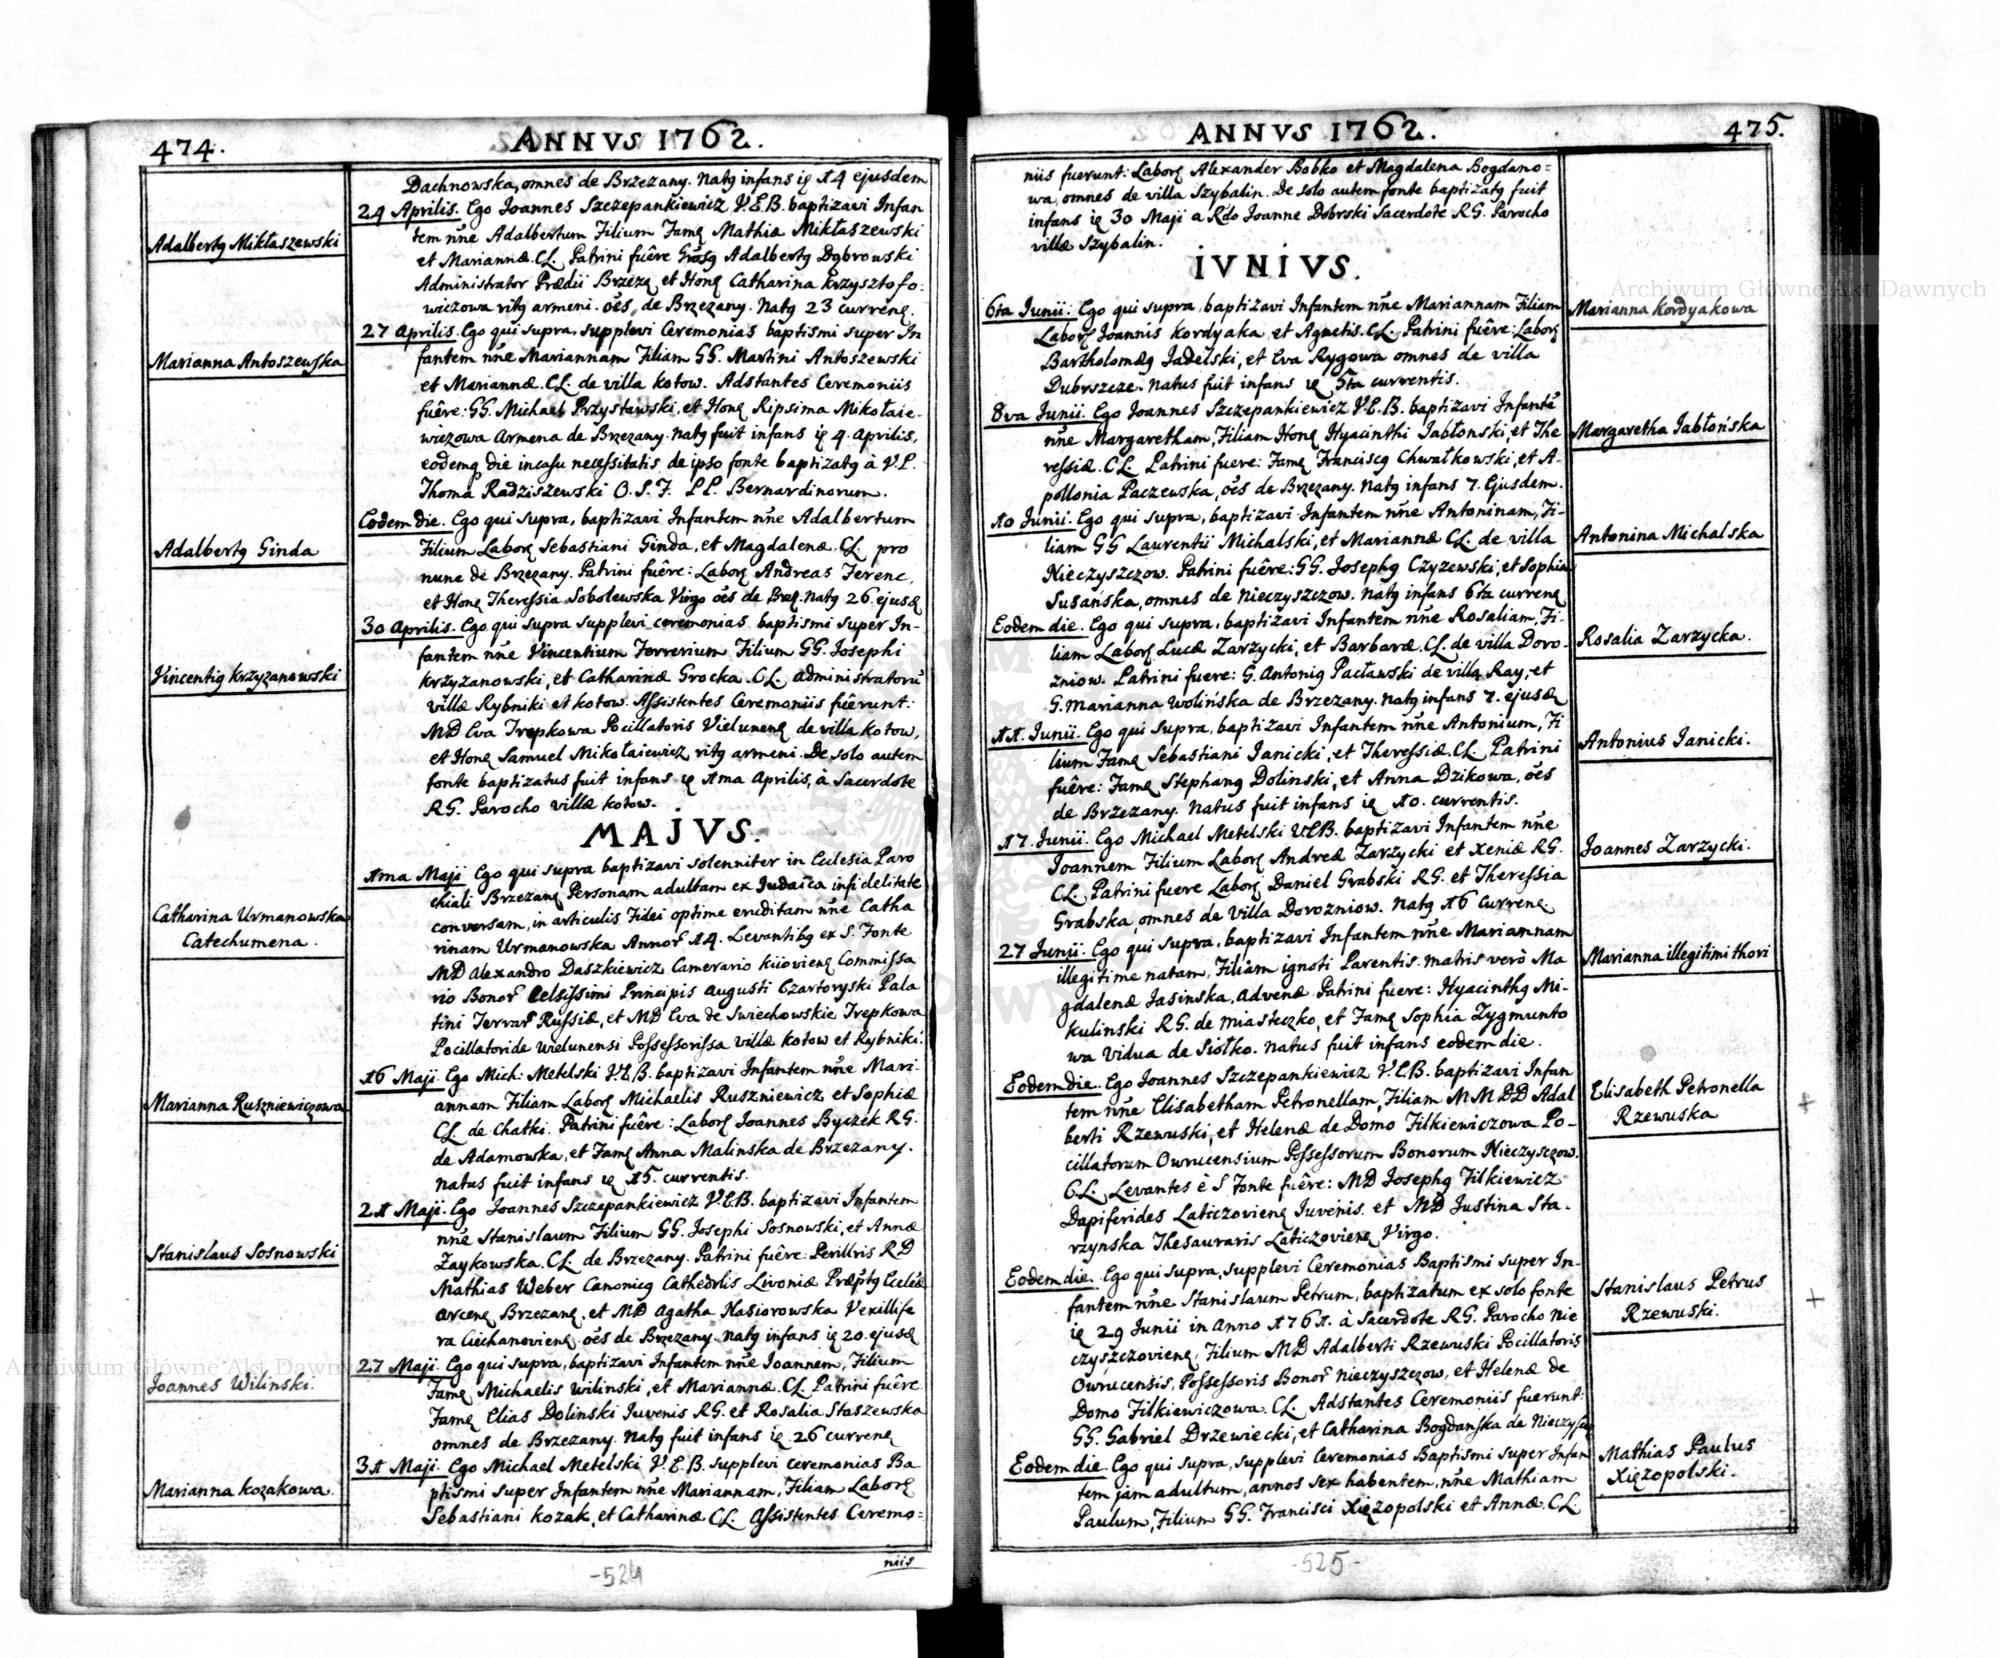 474.
ANNVS 1762.
Dachnowska, omnes de Brzezany. Natq infans ię 14 ejusdem
Adalbertq Mikłaszewski
24 Aprilis. Ego Joannes Szczepankiewicz V.E.B. baptizavi Infan
tem nñe Adalbertum Filium Famę Mathiæ Mikłaszewski
et Mariannæ. CL. Patrini fuêre Grõsq Adalbertq Dąbrowski
Administrator Prædii Brzezą et Honę Catharina Krzysztofo:
wiczowa ritq armeni. oẽs, de Brzezany. Natq 23 currenę.
Marianna Antoszewska
27 Aprilis. Ego qui supra, supplevi Ceremonias baptismi super In
fantem nñe Mariannam Filiam GG. Martini Antoszewski
et Mariannæ. CL. de villa Kotow. Adstantes Ceremoniis
fuêre: GG. Michael Przystawski, et Honę Ripsima Mikołaie-
wiczowa Armena de Brzezany. Natq fuit infans ię 4. Aprilis,
eodemq die incasu necessitatis de ipso fonte baptizatq à V.P.
Thoma Radziszewski O. S. F. PP. Bernardinorum.
Adalbertq Ginda
Eodem die. Ego qui supra, baptizavi Infantem nñe Adalbertum
Filium Laborę Sebastiani Ginda, et Magdalenæ. CL. pro
nunc de Brzezany. Patrini fuêre: Laborę Andreas Ferenc,
et Honę Theressia Sobolewska Virgo oẽs de Brzę. Natq 26 ejusą
Vincentiq Krzyzanowski
30 Aprilis. Ego qui supra supplevi ceremonias baptismi super In-
fantem nñe Vincentium Ferrerium Filium GG. Josephi
Krzyzanowski, et Catharinæ Grocka. CL. administratorũ
villæ Rybniki et Kotow. Assistentes Ceremoniis fuêrunt:
MD Eva Trepkowa Pocillatoris Vielunenę de villa Kotow,
et Honę Samuel Mikołaiewicz ritq armeni. De solo autem
fonte baptizatus fuit infans ię 1ma Aprilis, à Sacerdote
RG. Parocho villæ Kotow.
MAJVS.
Catharina Urmanowska
Catechumena.
1ma Maji Ego qui supra baptizavi solenniter in Ecclesia Paro
chiali Brzezanę Personam adultam ex Judaica infidelitate
conversam, in articulis Fidei optime eruditam nñe Catha
rinam Urmanowska Annor 14. Levantibq ex S. Fonte
MD Alexandro Daszkiewicz Camerario Kiiovienę Commissa
rio Bonor Celsissimi Principis Augusti Czartoryski Pala
tini Terrar Russiæ, et MD Eva de Swiechowskie Trepkowa
Pocillatoride Wielunensi Possessorissa villæ Kotow et Rybniki.
Marianna Ruszniewiczowa
16 Maji. Ego Mich: Metelski V.E.B. baptizavi Infantem nñe Mari-
annam Filiam Laborę Michaelis Ruszniewicz et Sophiæ
CL. de Chatki. Patrini fuêre: Laborę Joannes Byczek RG.
de Adamowska, et Famę Anna Malinska de Brzezany.
Natus fuit infans ię 15. currentis.
Stanislaus Sosnowski
21 Maji. Ego Joannes Szczepankiewicz V.E.B. baptizavi Infantem
nñe Stanislaum Filium GG. Josephi Sosnowski, et Annæ
Zaykowska. CL. de Brzezany. Patrini fuêre: Perillris RD
Mathias Weber Canonicq Cathedrlis Livoniæ Præpstq Ecclæ
Arcenę Brzezanę. et MD Agatha Nasiorowska Vexillife
ra Ciechanovienę. oẽs de Brzezany. Natq infans ię 20. ejusą
Joannes Wilinski.
27 Maji. Ego qui supra, baptizavi Infantem nñe Joannem, Filium
Famę Michaelis Wilinski, et Mariannæ. CL. Patrini fuêre
Famę Elias Dolinski Juvenis RG. et Rosalia Staszewska
omnes de Brzezany. Natq fuit infans ię 26 currenę
Marianna Kozakowa.
31 Maji. Ego Michael Metelski V.E.B. supplevi ceremonias Ba
ptismi super Infantem nñe Mariannam, Filiam Laborę
Sebastiani Kozak, et Catharinæ CL. Assistentes Ceremo=
niis
-524
ANNVS 1762.
475.
niis fuerunt: Laborę Alexander Bobko et Magdalena Bogdano=
wa, omnes de villa Szybalin. De solo autem fonte baptizatq fuit
infans ię 30 Maji a Rdo Joanne Dobrski Sacerdote RG. Parocho
villæ Szybalin.
IVNIVS.
6ta Junii. Ego qui supra, baptizavi Infantem nñe Mariannam Filiam
Laborę Joannis Kordyaka, et Agnetis. CL. Patrini fuêre: Laborę
Bartholomæq Jadelski, et Eva Rygowa omnes de villa
Dubrszcze. Natus fuit infans ię 5ta currentis.
Marianna Kordyakowa
8va Junii. Ego Joannes Szczepankiewicz V.E.B. baptizavi Infantẽ
nñe Margaretham, Filiam Honę Hyacinthi Jabłonski, et The
ressiæ. CL. Patrini fuere: Famę Franciscq Chwałkowski, et A-
pollonia Paczewska, oẽs de Brzezany. Natq infans 7. Ejusdem.
Margaretha Jabłońska
10 Junii. Ego qui supra, baptizavi Infantem nñe Antoninam, Fi-
liam GG Laurentii Michalski, et Mariannæ CL. de villa
Nieczyszczow. Patrini fuêre: GG. Josephq Czyzewski, et Sophia
Susańska, omnes de Nieczyszczow. Natq infans 6ta currenę
Antonina Michalska
Eodem die. Ego qui supra, baptizavi Infantem nñe Rosaliam, Fi-
liam Laborę Lucæ Zarzycki, et Barbaræ. CL. de villa Doro-
zniow. Patrini fuere: G. Antoniq Pacławski de villa Ray, et
G. Marianna Wolińska de Brzezany. Natq infans 7. ejusą
Rosalia Zarzycka.
11. Junii. Ego qui supra, baptizavi Infantem nñe Antonium, Fi
lium Famę Sebastiani Janicki, et Theressiæ CL. Patrini
fuêre: Famę Stephanq Dolinski, et Anna Dzikowa, oẽs
de Brzezany. Natus fuit infans ię 10. currentis.
Antonius Janicki.
17. Junii. Ego Michael Metelski VEB. baptizavi Infantem nñe
Joannem Filium Laborę Andreæ Zarzycki et Xeniæ RG.
CL. Patrini fuere Laborę Daniel Grabski RG. et Theressia
Grabska, omnes de Villa Dorozniow. Natq 16 Currenę.
Joannes Zarzycki.
27 Junii. Ego qui supra, baptizavi Infantem nñe Mariannam
illegitime natam, Filiam ignoti Parentis. Matris verò Ma
gdalenæ Jasinska, Advenæ. Patrini fuere: Hyacinthq Mi-
kulinski RG. de Miasteczko, et Famę Sophia Zygmunto
wa Vidua de Siołko. Natus fuit infans eodem die.
Marianna illegitimi thori
Eodem die. Ego Joannes Szczepankiewicz V.E.B. baptizavi Infan
tem nñe Elisabetham Petronellam, Filiam MM DD Adal
berti Rzewuski, et Helenæ de Domo Filkiewiczowa Po-
cillatorum Owrucensium Possessorum Bonorum Nieczyszczow.
CL. Levantes è S. Fonte fuêre: MD Josephq Filkiewicz
Dapiferides Laticzovienę Juvenis. et MD Justina Sta-
rzynska Thesauraris Laticzovienę Virgo.
Elisabeth Petronella
Rzewuska
Eodem die. Ego qui supra, supplevi Ceremonias Baptismi super In-
fantem nñe Stanislaum Petrum, baptizatum ex solo fonte
ię 29 Junii in Anno 1761. à Sacerdote RG. Parocho Nie
czyszczovienę, Filium MD Adalberti Rzewuski Pocillatoris
Owrucensis, Possessoris Bonor Nieczyszczow, et Helenæ de
Domo Filkiewiczowa. CL. Adstantes Ceremoniis fuerunt:
GG. Gabriel Drzewiecki, et Catharina Bogdanska de Nieczyszczow
Stanislaus Petrus
Rzewuski.
Eodem die. Ego qui supra, supplevi Ceremonias Baptismi super Infan
tem jam adultum, annos sex habentem, nñe Mathiam
Paulum, Filium GG. Francisci Xięzopolski et Annæ. CL.
Mathias Paulus
Xięzopolski.
-525-
Archiwum Główne Akt Dawnych
Archiwum Główne Akt Dawnych